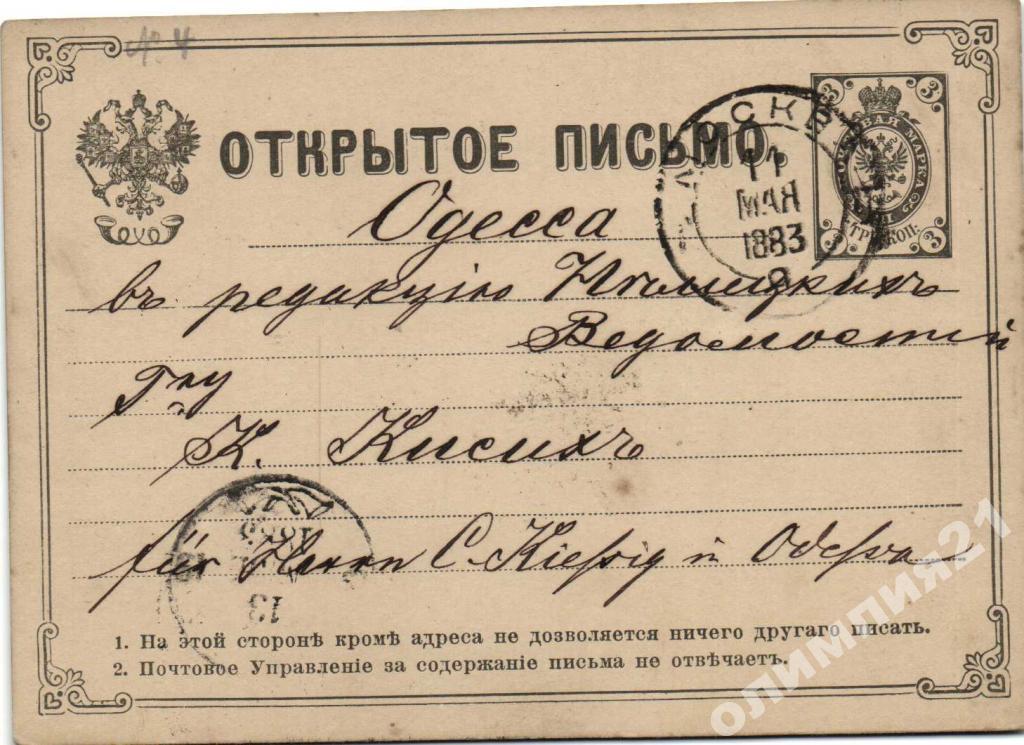 № 4
ОТКРЫТОЕ ПИСЬМО.
МОСКВА
11
МАЯ
1883
3 3
ТРИ КОП.
3 3
Одесса
въ редакцію
Ведомостей
Гну
К. Кисихъ
für Herrn C. Kießig in Odessa
13
1. На этой сторонѣ кромѣ адреса не дозволяется ничего другаго писать.
2. Почтовое Управленіе за содержаніе письма не отвѣчаетъ.
ОЛИМПИЯ21